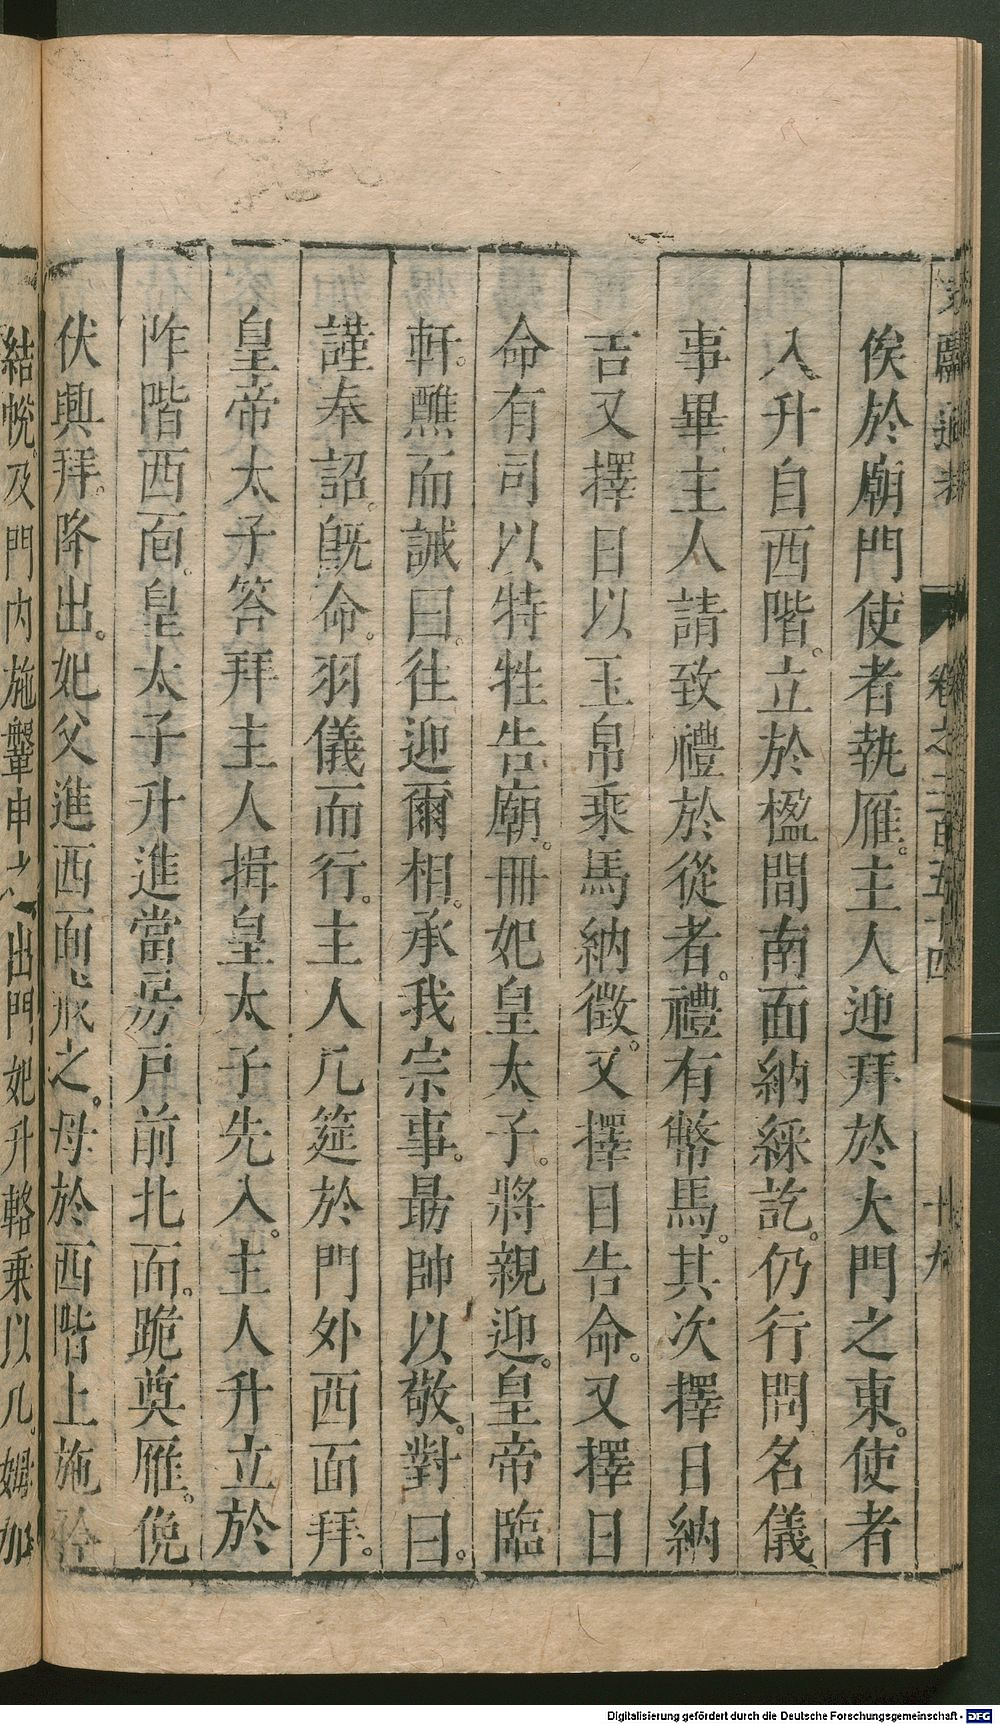 文獻通考 卷之二百五十四 十九
俟於廟門使者執雁。主人迎拜於大門之東。使者
入升自西階。立於楹間南面納綵訖。仍行問名儀
事畢主人請致禮於從者。禮有幣馬。其次擇日納
吉又擇日以玉帛乘馬納徵。又擇日告命。又擇日
命有司以特牲告廟。冊妃皇太子。將親迎。皇帝臨
軒。醮而誡曰。往迎爾相。承我宗事。勗帥以敬。對曰。
謹奉詔。既命。羽儀而行。主人几筵於門外西面拜。
皇帝太子答拜主人揖皇太子先入。主人升立於
阼階西面。皇太子升進當房戶前北面。跪奠雁。俛
伏興拜。降出。妃父進西面戒之。母於西階上施衿
結帨。及門內施鞶申之出門妃升輅乘以几。姆加
Digitalisierung gefördert durch die Deutsche Forschungsgemeinschaft - DFG